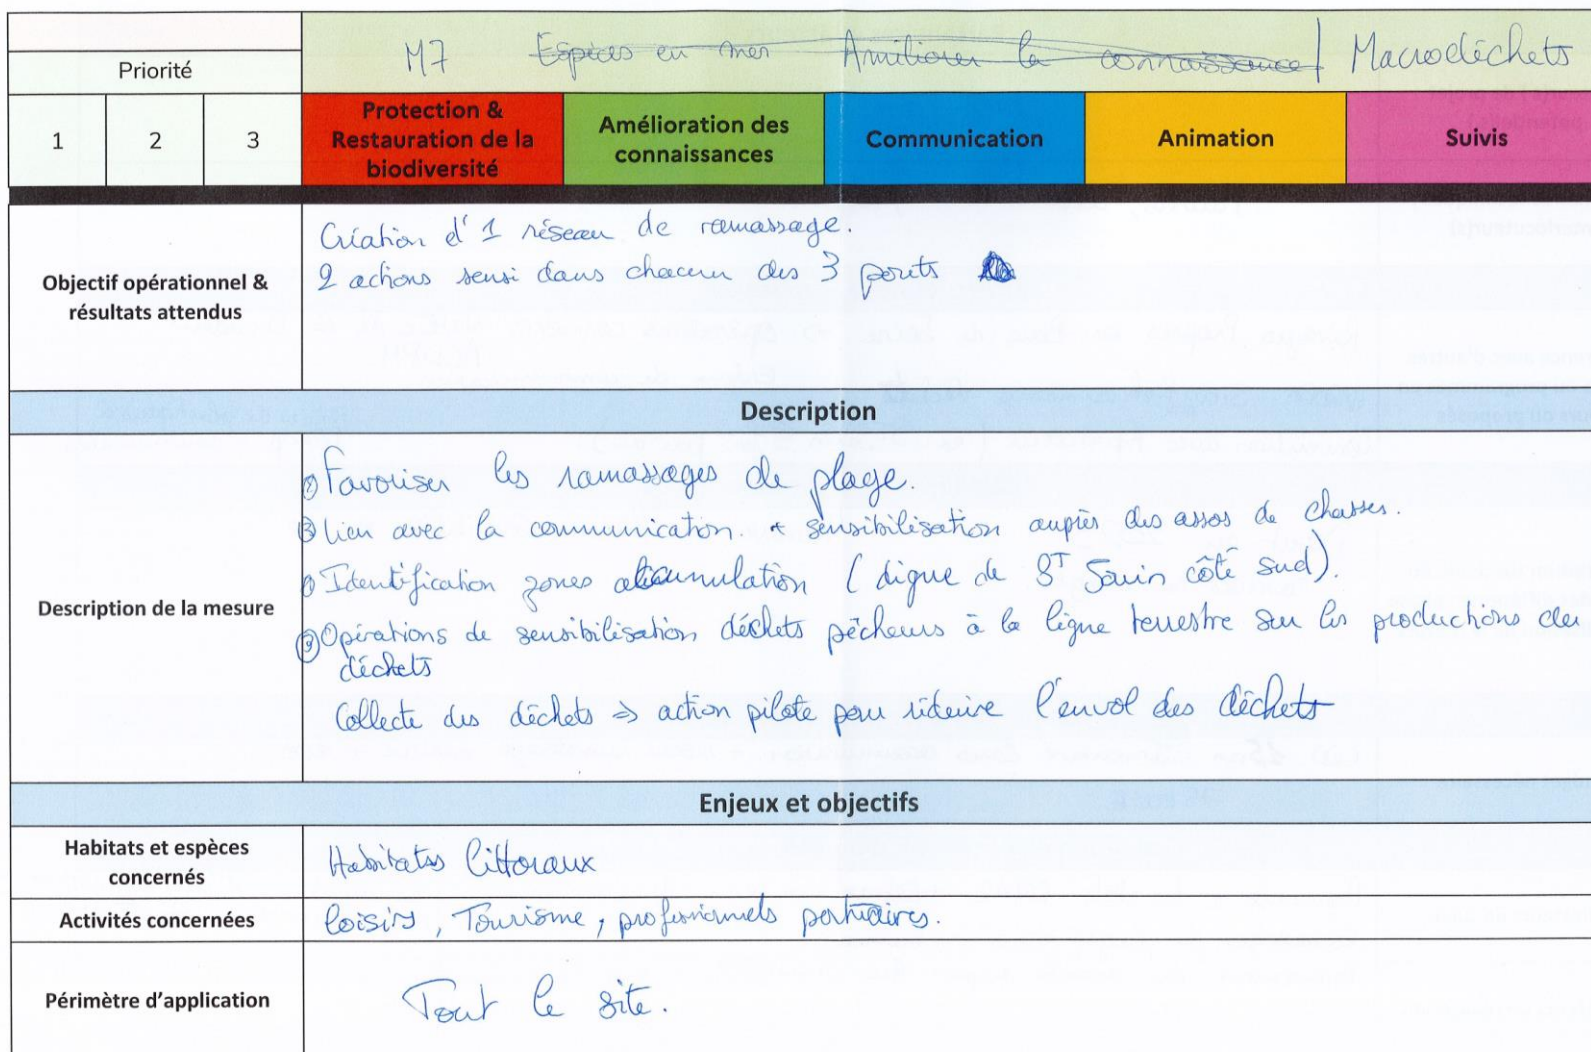 M7 Espèces en mer Améliorer la connaissance / Macrodéchets
Priorité
1 2 3
Protection & Restauration de la biodiversité
Amélioration des connaissances
Communication
Animation
Suivis
Objectif opérationnel & résultats attendus
Création d' 1 réseau de ramassage.
2 actions sensi dans chacun des 3 ports
Description
Description de la mesure
② Favoriser les ramassages de plage.
③ Lien avec la communication + sensibilisation auprès des assos de chasses.
① Identification zones accumulation (digue de Sᵀ côté sud).
Opérations de sensibilisation déchets pêcheurs à la ligne terrestre sur les productions de
déchets
Collecte des déchets => action pilote pour réduire l'envol des déchets
Enjeux et objectifs
Habitats et espèces concernés
Habitats littoraux
Activités concernées
Loisirs, Tourisme, professionnels portuaires.
Périmètre d'application
Tout le site.